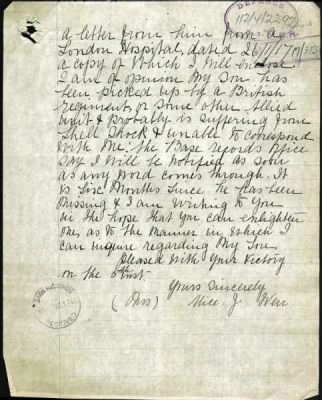 DEFENCE
A letter from him from a
London Hospital, dated 26/11/17
a copy of which I will enclose
I am of opinion My Son has
been picked up by a British
regiment or some other Allied
unit & probably is suffering from
Shell Shock & unable to correspond
with Me. the Base records office
Say I will be notified as soon
as any word comes through. It
is Six Months since he has been
Missing & I am writing to You
in the hope that you can enlighten
me as to the Manner in which I
can inquire regarding My Son
pleased with Your Victory
on the 5th inst.
Yours Sincerely
(Mrs) Alice J.